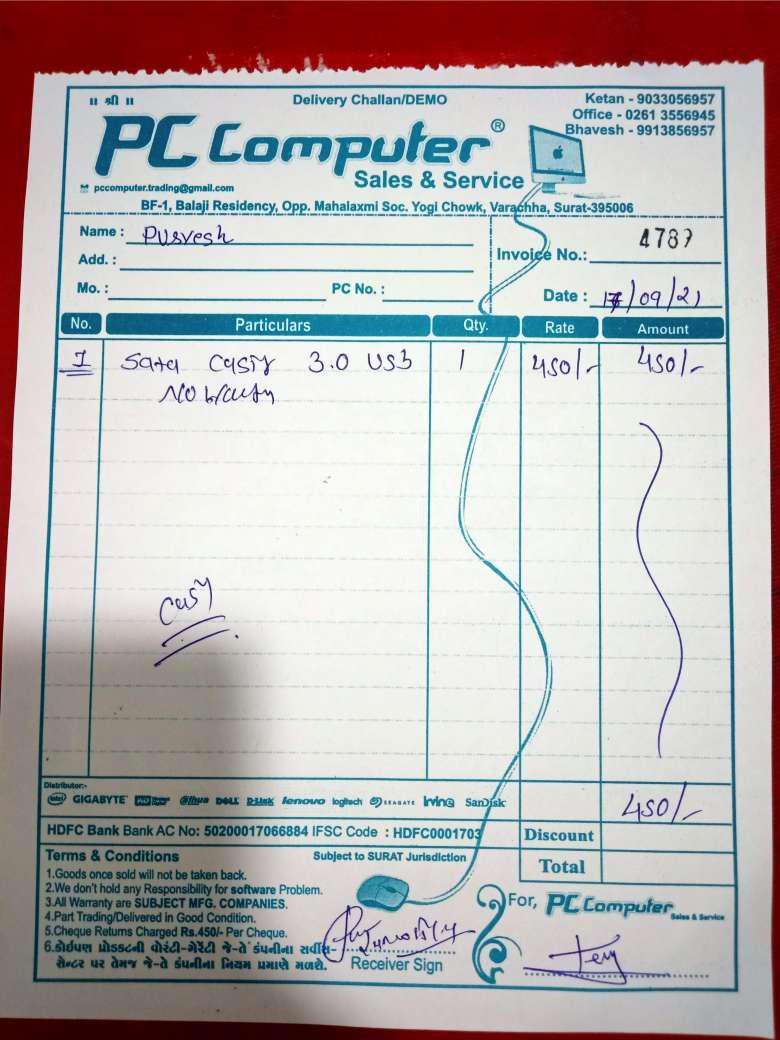 ॥ श्री ॥
Delivery Challan/DEMO
Ketan - 9033056957
Office - 0261 3556945
Bhavesh - 9913856957
PC Computer ®
Sales & Service
pccomputer.trading@gmail.com
BF-1, Balaji Residency, Opp. Mahalaxmi Soc. Yogi Chowk, Varachha, Surat-395006
Name : Purvesh
Invoice No.: 4787
Add. :
Mo. : PC No. :
Date : 17/09/21
No. Particulars Qty. Rate Amount
1 Sata Casing 3.0 USB 1 450/- 450/-
Distributor:-
intel GIGABYTE alhua DELL D-Link lenovo logitech SEAGATE SanDisk
450/-
HDFC Bank Bank AC No: 50200017066884 IFSC Code : HDFC0001703
Discount
Total
Terms & Conditions
Subject to SURAT Jurisdiction
1.Goods once sold will not be taken back.
2.We don't hold any Responsibility for software Problem.
3.All Warranty are SUBJECT MFG. COMPANIES.
4.Part Trading/Delivered in Good Condition.
5.Cheque Returns Charged Rs.450/- Per Cheque.
6.કોઈપણ પ્રોડક્ટની વોરંટી-ગેરેંટી જે-તે કંપનીના સર્વીસ-
સેન્ટર પર તેમજ જે-તે કંપનીના નિયમ પ્રમાણે મળશે.
Receiver Sign
For, PC Computer
Sales & Service